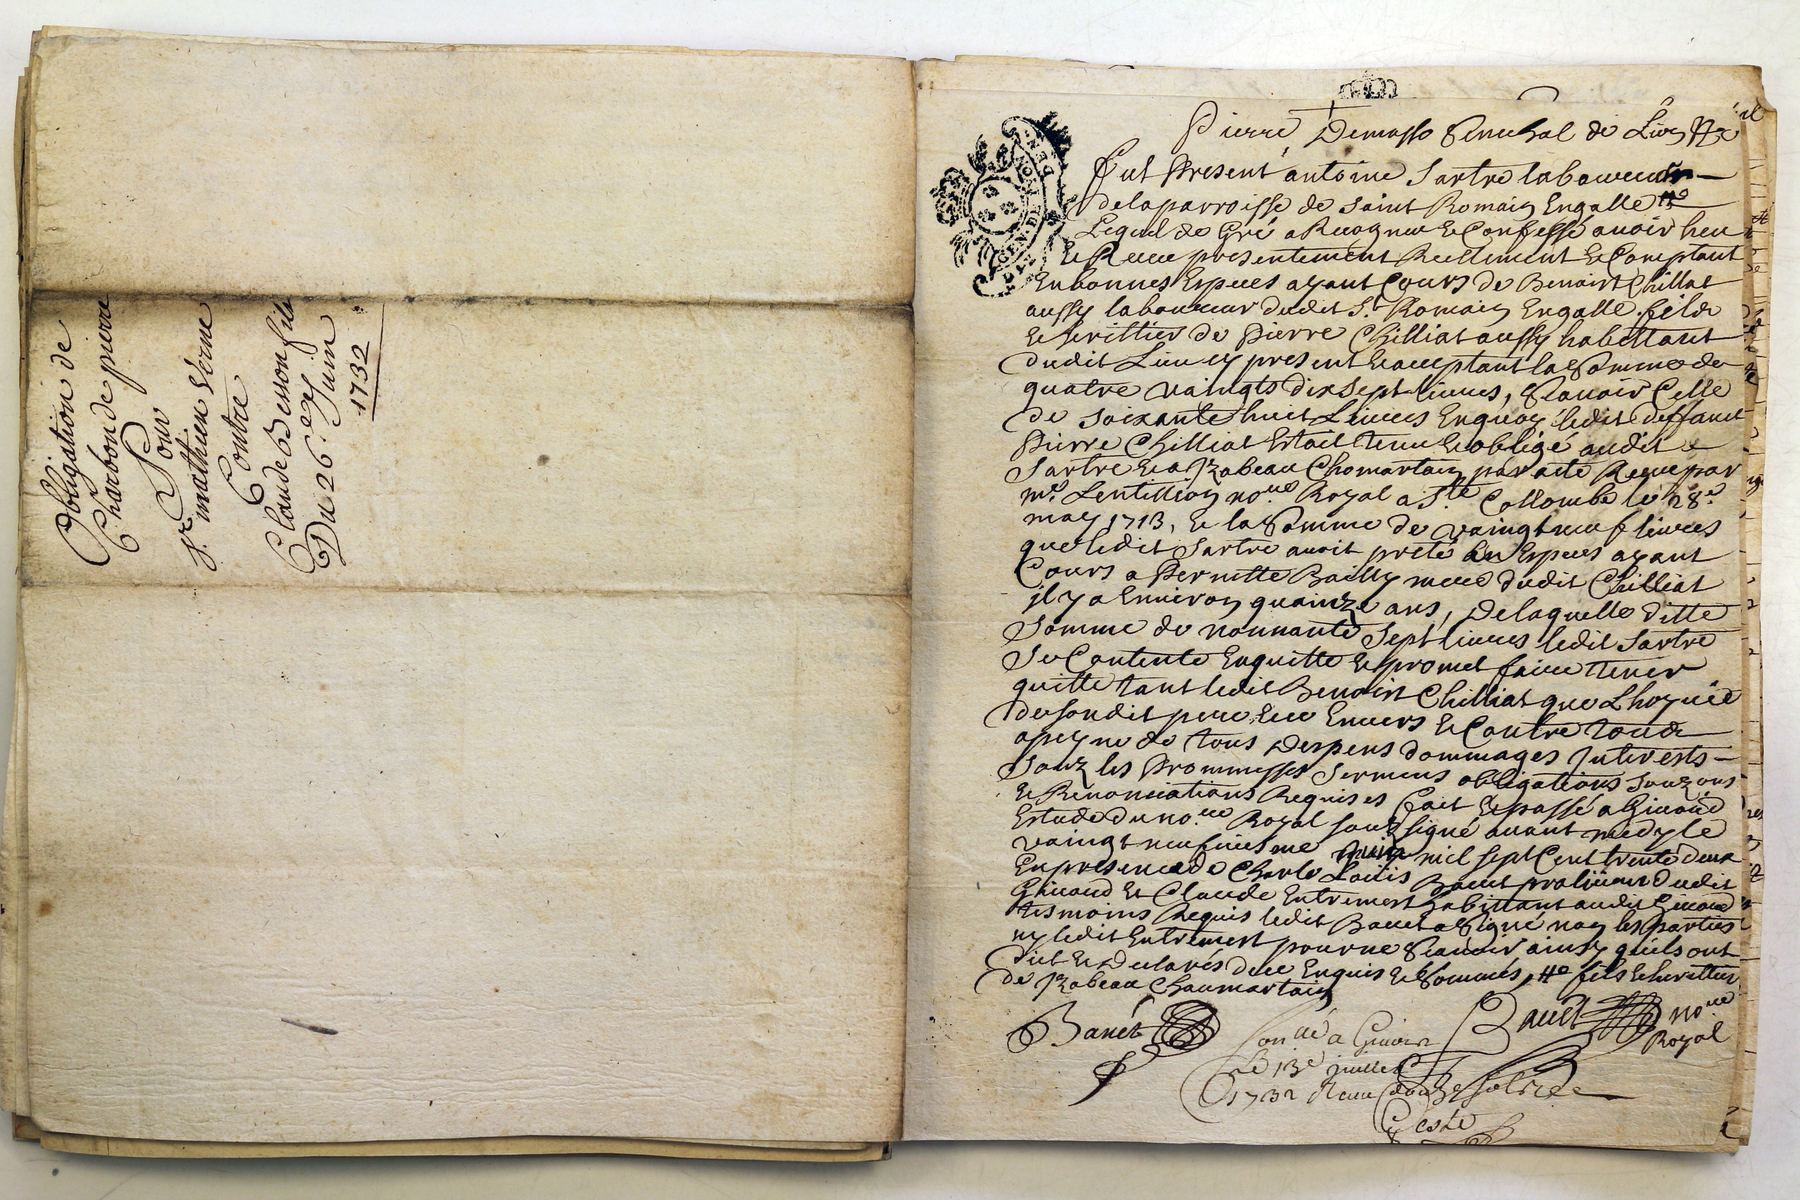 Obligation de
Charbon de pierre
Pour
Sr. mathieu
Contre
Claude Besson fils
Du 26e Juin
1732
Pierre, Demasso Senechal de Lion
Fut Present antoine Sartre laboureur
de la parroisse de Saint Romain Engalle
Lequel de Gré a Recognu & Confessé auoir heu
& Receu presentement Reellement & Comptant
En bonnes Especes ayant Cours de Benoist Chilliat
aussy laboureur dudit St. Romain Engalle fils &
& herittier de Pierre Chilliat aussy habittant
dudit Lieu cy present & acceptant la Somme de
quatre vaingts dix sept liures, Scauoir Celle
de Soixante huit Liures En quoy ledit deffunt
Pierre Chilliat Estoit tenu & obligé audit
Sartre & a Izabeau Chomartain par acte Receu par
me. Lentillion nore Royal a Ste. Collombe le 28e
may 1713, & la Somme de vaingt neuf liures
que ledit Sartre auoit preté En Especes ayant
Cours a Pernette Bailly mere dudit Chilliat
il y a Enuiron quainze ans, de laquelle ditte
Somme de nonnante sept liures ledit Sartre
Se Contente En quitte & promet faire tenir
quitte tant ledit Benoist Chilliat que L'hoyrie
de son dit pere Enuers & Contre tous
a peyne de tous Despens dommages Interests
Souz les Prommesses Sermens obligations
& Renonciations Requises fait & passé a Giuord
Estude du nore Royal souzsigné auant medy le
vaingt neufuiesme Juin mil sept Cent trente deux
En presence de Charle Louis Banet dudit
Giuord Et Claude Entremert habittant audit Giuord
tesmoins Requis ledit Banet a Signé non les parties
ny ledit Entremert pour ne Scauoir ainsy quils ont
dit & Declarés de ce Enquis & Sommés, fils & herittier
de Izabeau Chaumartain
Banet Bauet nore
Royal
a Giuord
Le 13e juillet
1732 Receu douze sols